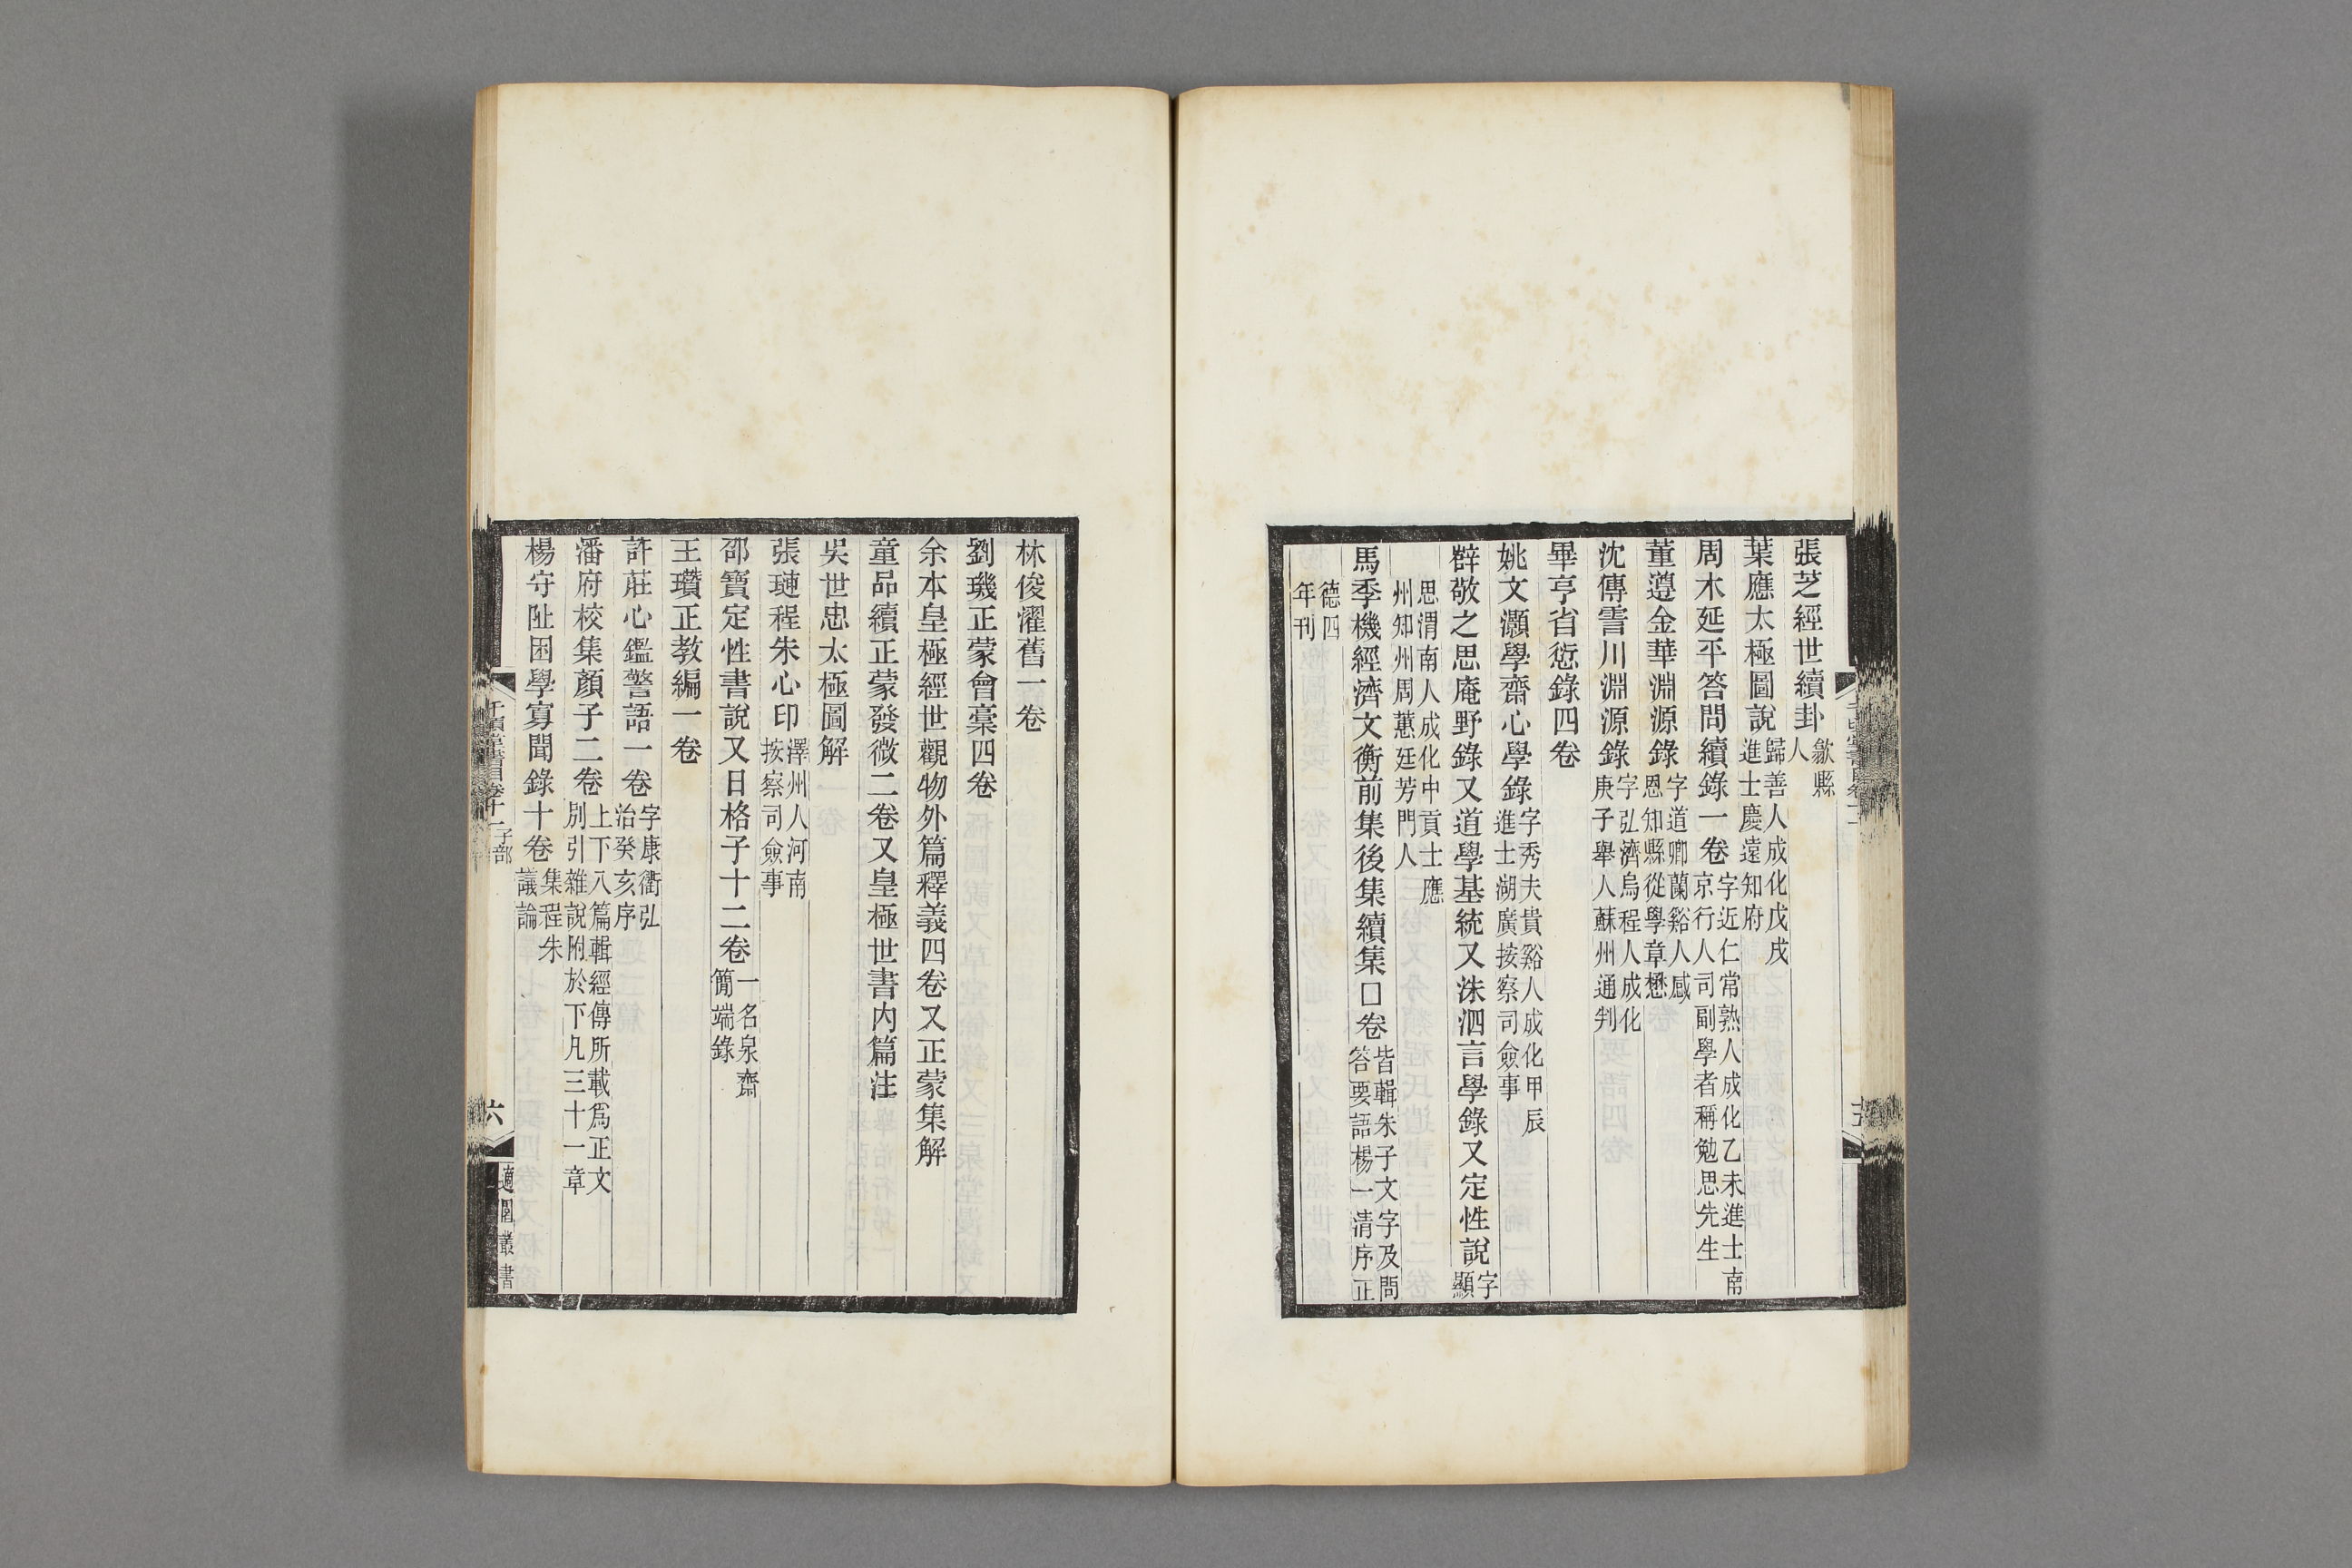 張芝經世續卦歙縣人
葉應太極圖說歸善人成化戊戌進士慶遠知府
周木延平答問續錄一卷字近仁常熟人成化乙未進士南京行人司副學者稱勉思先生
董遵金華淵源錄字道卿蘭谿人感恩知縣從學章懋
沈傳霅川淵源錄字弘濟烏程人成化庚子舉人蘇州通判
畢亨省愆錄四卷
姚文灝學齋心學錄字秀夫貴谿人成化甲辰進士湖廣按察司僉事
辥敬之思庵野錄又道學基統又洙泗言學錄又定性說字顯
思渭南人成化中貢士應州知州周蕙廷芳門人
馬季機經濟文衡前集後集續集囗卷皆輯朱子文字及問答要語楊一清序正
德四年刊
林俊濯舊一卷
劉璣正蒙會稾四卷
余本皇極經世觀物外篇釋義四卷又正蒙集解
童品續正蒙發微二卷又皇極世書內篇注
吳世忠太極圖解
張璉程朱心印澤州人河南按察司僉事
邵寶定性書說又日格子十二卷一名泉齋簡端錄
王瓚正教編一卷
許莊心鑑警語一卷字康衢弘治癸亥序
潘府校集顏子二卷上下八篇輯經傳所載爲正文別引雜說附於下凡三十一章
楊守阯困學寡聞錄十卷集程朱議論
千頃堂書目卷十一子部
六
適園叢書